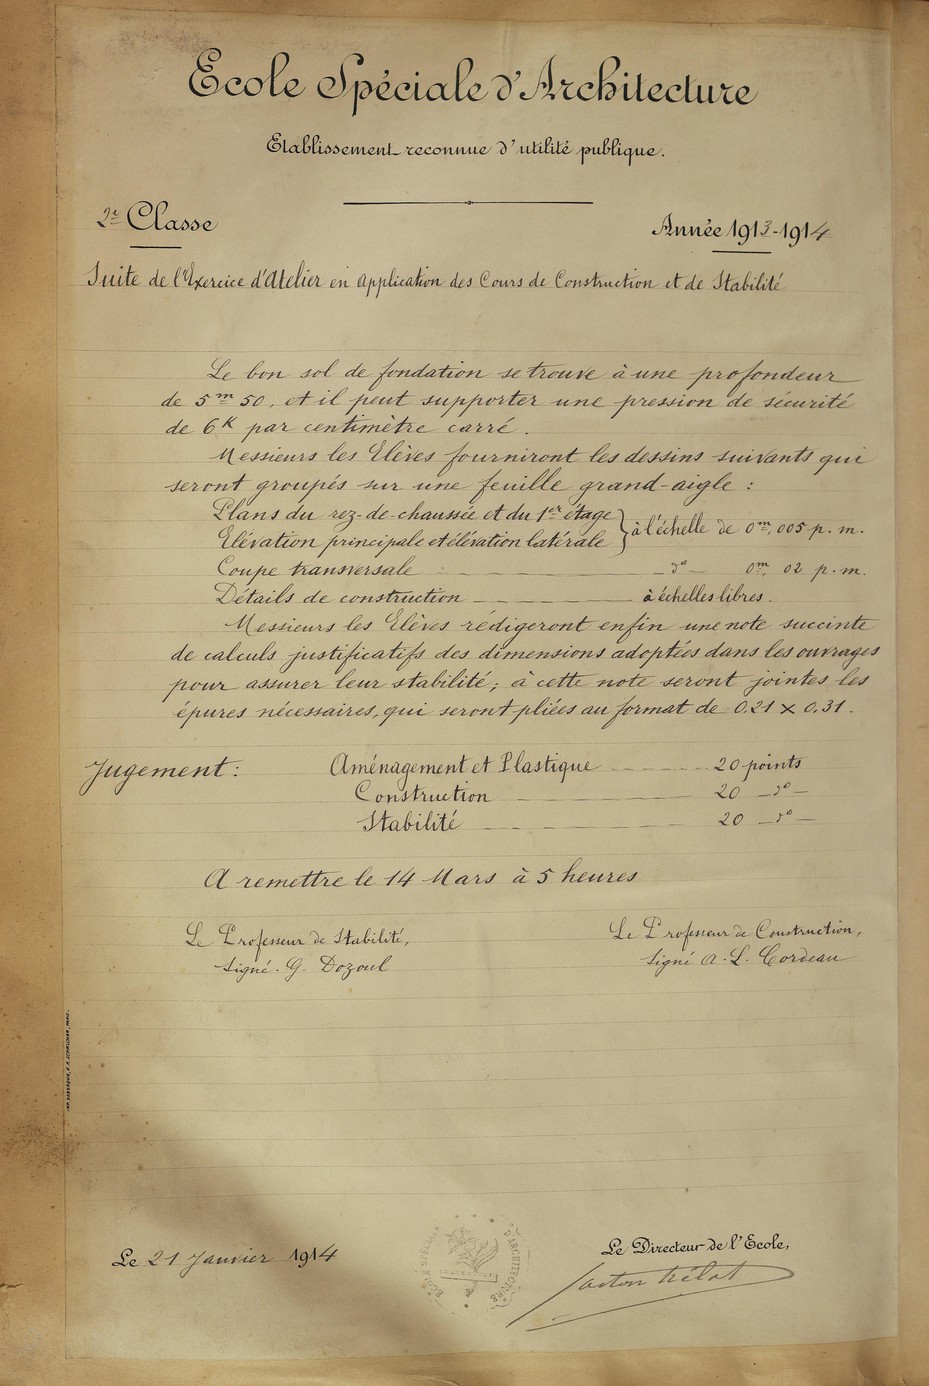 Ecole Spéciale d'Architecture
Etablissement reconnue d'utilité publique.
2e Classe
Année 1913-1914
Suite de l'Exercice d'Atelier en Application des Cours de Construction et de Stabilité
Le bon sol de fondation se trouve à une profondeur
de 5m 50, et il peut supporter une pression de sécurité
de 6K par centimètre carré.
Messieurs les Elèves fourniront les dessins suivants qui
seront groupés sur une feuille grand-aigle :
Plans du rez-de-chaussée et du 1er étage
Elévation principale et élévation latérale } à l'échelle de 0m,005 p. m.
Coupe transversale — d° — 0m, 02 p. m.
Détails de construction — à échelles libres.
Messieurs les Elèves rédigeront enfin une note succinte
de calculs justificatifs des dimensions adoptées dans les ouvrages
pour assurer leur stabilité; à cette note seront jointes les
épures nécessaires, qui seront pliées au format de 0,21 x 0,31.
Jugement: Aménagement et Plastique — 20 points
Construction — 20 — d° —
Stabilité — 20 — d° —
A remettre le 14 Mars à 5 heures
Le Professeur de Stabilité,
Signé. G. Dozoul
Le Professeur de Construction,
Signé A. L. Cordeau
Le 21 Janvier 1914
Le Directeur de l'Ecole,
Gaston Trélat
ECOLE SPÉCIALE D'ARCHITECTURE